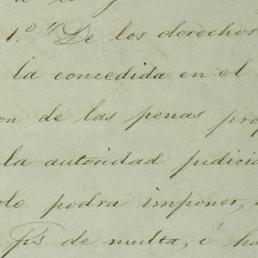 1.º y De los derechos
la concedida en el
on de las penas pro
la autoridad judicia
olo podra imponer,
Ps de multa, ó ha